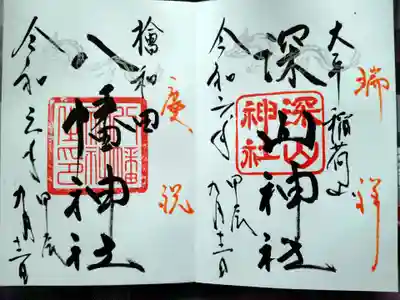 瑞祥
大年稲荷山
深山神社
深山神社
令和六年 甲辰 九月十二日
慶祝
檜和田
八幡神社
令和六年 甲辰 九月十二日